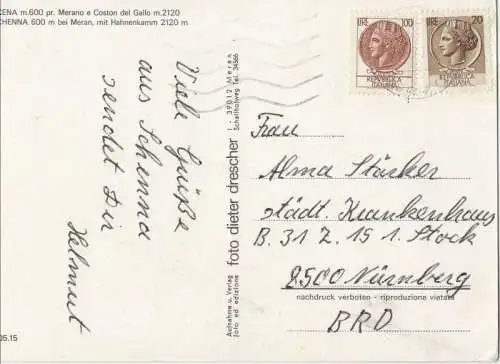 CENA m.600 pr. Merano e Coston del Gallo m.2120
CHENNA 600 m bei Meran, mit Hahnenkamm 2120 m
Viele Grüße
aus Schenna
sendet Dir
Helmut
05.15
Aufnahme u. Verlag
foto ed edizione
foto dieter drescher
I - 39012 Meran
Schaffholweg Tel. 34566
LIRE 100
REPUBBLICA
ITALIANA
LIRE 20
REPUBBLICA
ITALIANA
Frau
Alma Stärker
städt. Krankenhaus
B. 31 Z. 15 1. Stock
8500 Nürnberg
nachdruck verboten - riproduzione vietata
BRD